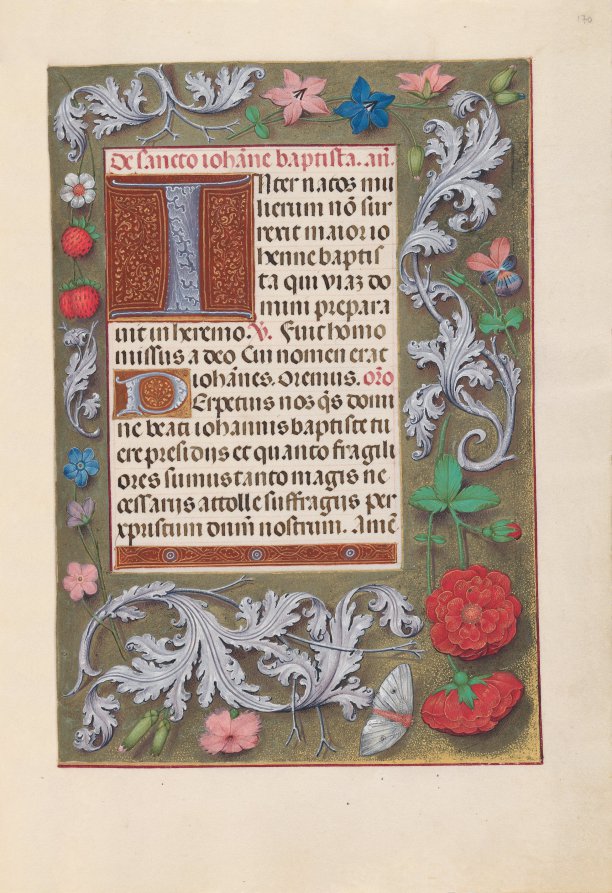 170
De sancto iohāne baptista. añ.
Inter natos mu
lierum nō sur
rexit maior io
henne baptis
ta qui viaz do
mini prepara
uit in heremo. V. Fuit homo
missus a deo Cui nomen erat
iohānes. Oremus. orō
Perpetuis nos q̄s domi
ne beati iohannis baptiste tu
ere presidijs et quanto fragili
ores sumus tanto magis ne
cessarijs attolle suffragijs per
xpristum dnm̄ nostrum. Amē